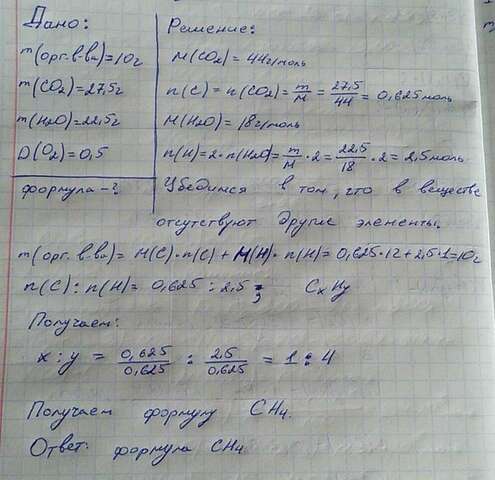 Дано:
m(орг.в-ва)=10г
m(CO₂)=27,5г
m(H₂O)=22,5г
D(O₂)=0,5
формула-?
Решение:
M(CO₂)=44г/моль
n(C)=n(CO₂)=m/M=27,5/44=0,625моль
M(H₂O)=18г/моль
n(H)=2·n(H₂O)=m/M·2=22,5/18·2=2,5моль
Убедимся в том, что в веществе
отсутствуют другие элементы.
m(орг.в-ва)=M(C)·n(C)+M(H)·n(H)=0,625·12+2,5·1=10г
n(C):n(H)=0,625:2,5; CxHy
Получаем:
x:y=0,625/0,625:2,5/0,625=1:4
Получаем формулу CH₄.
Ответ: формула CH₄